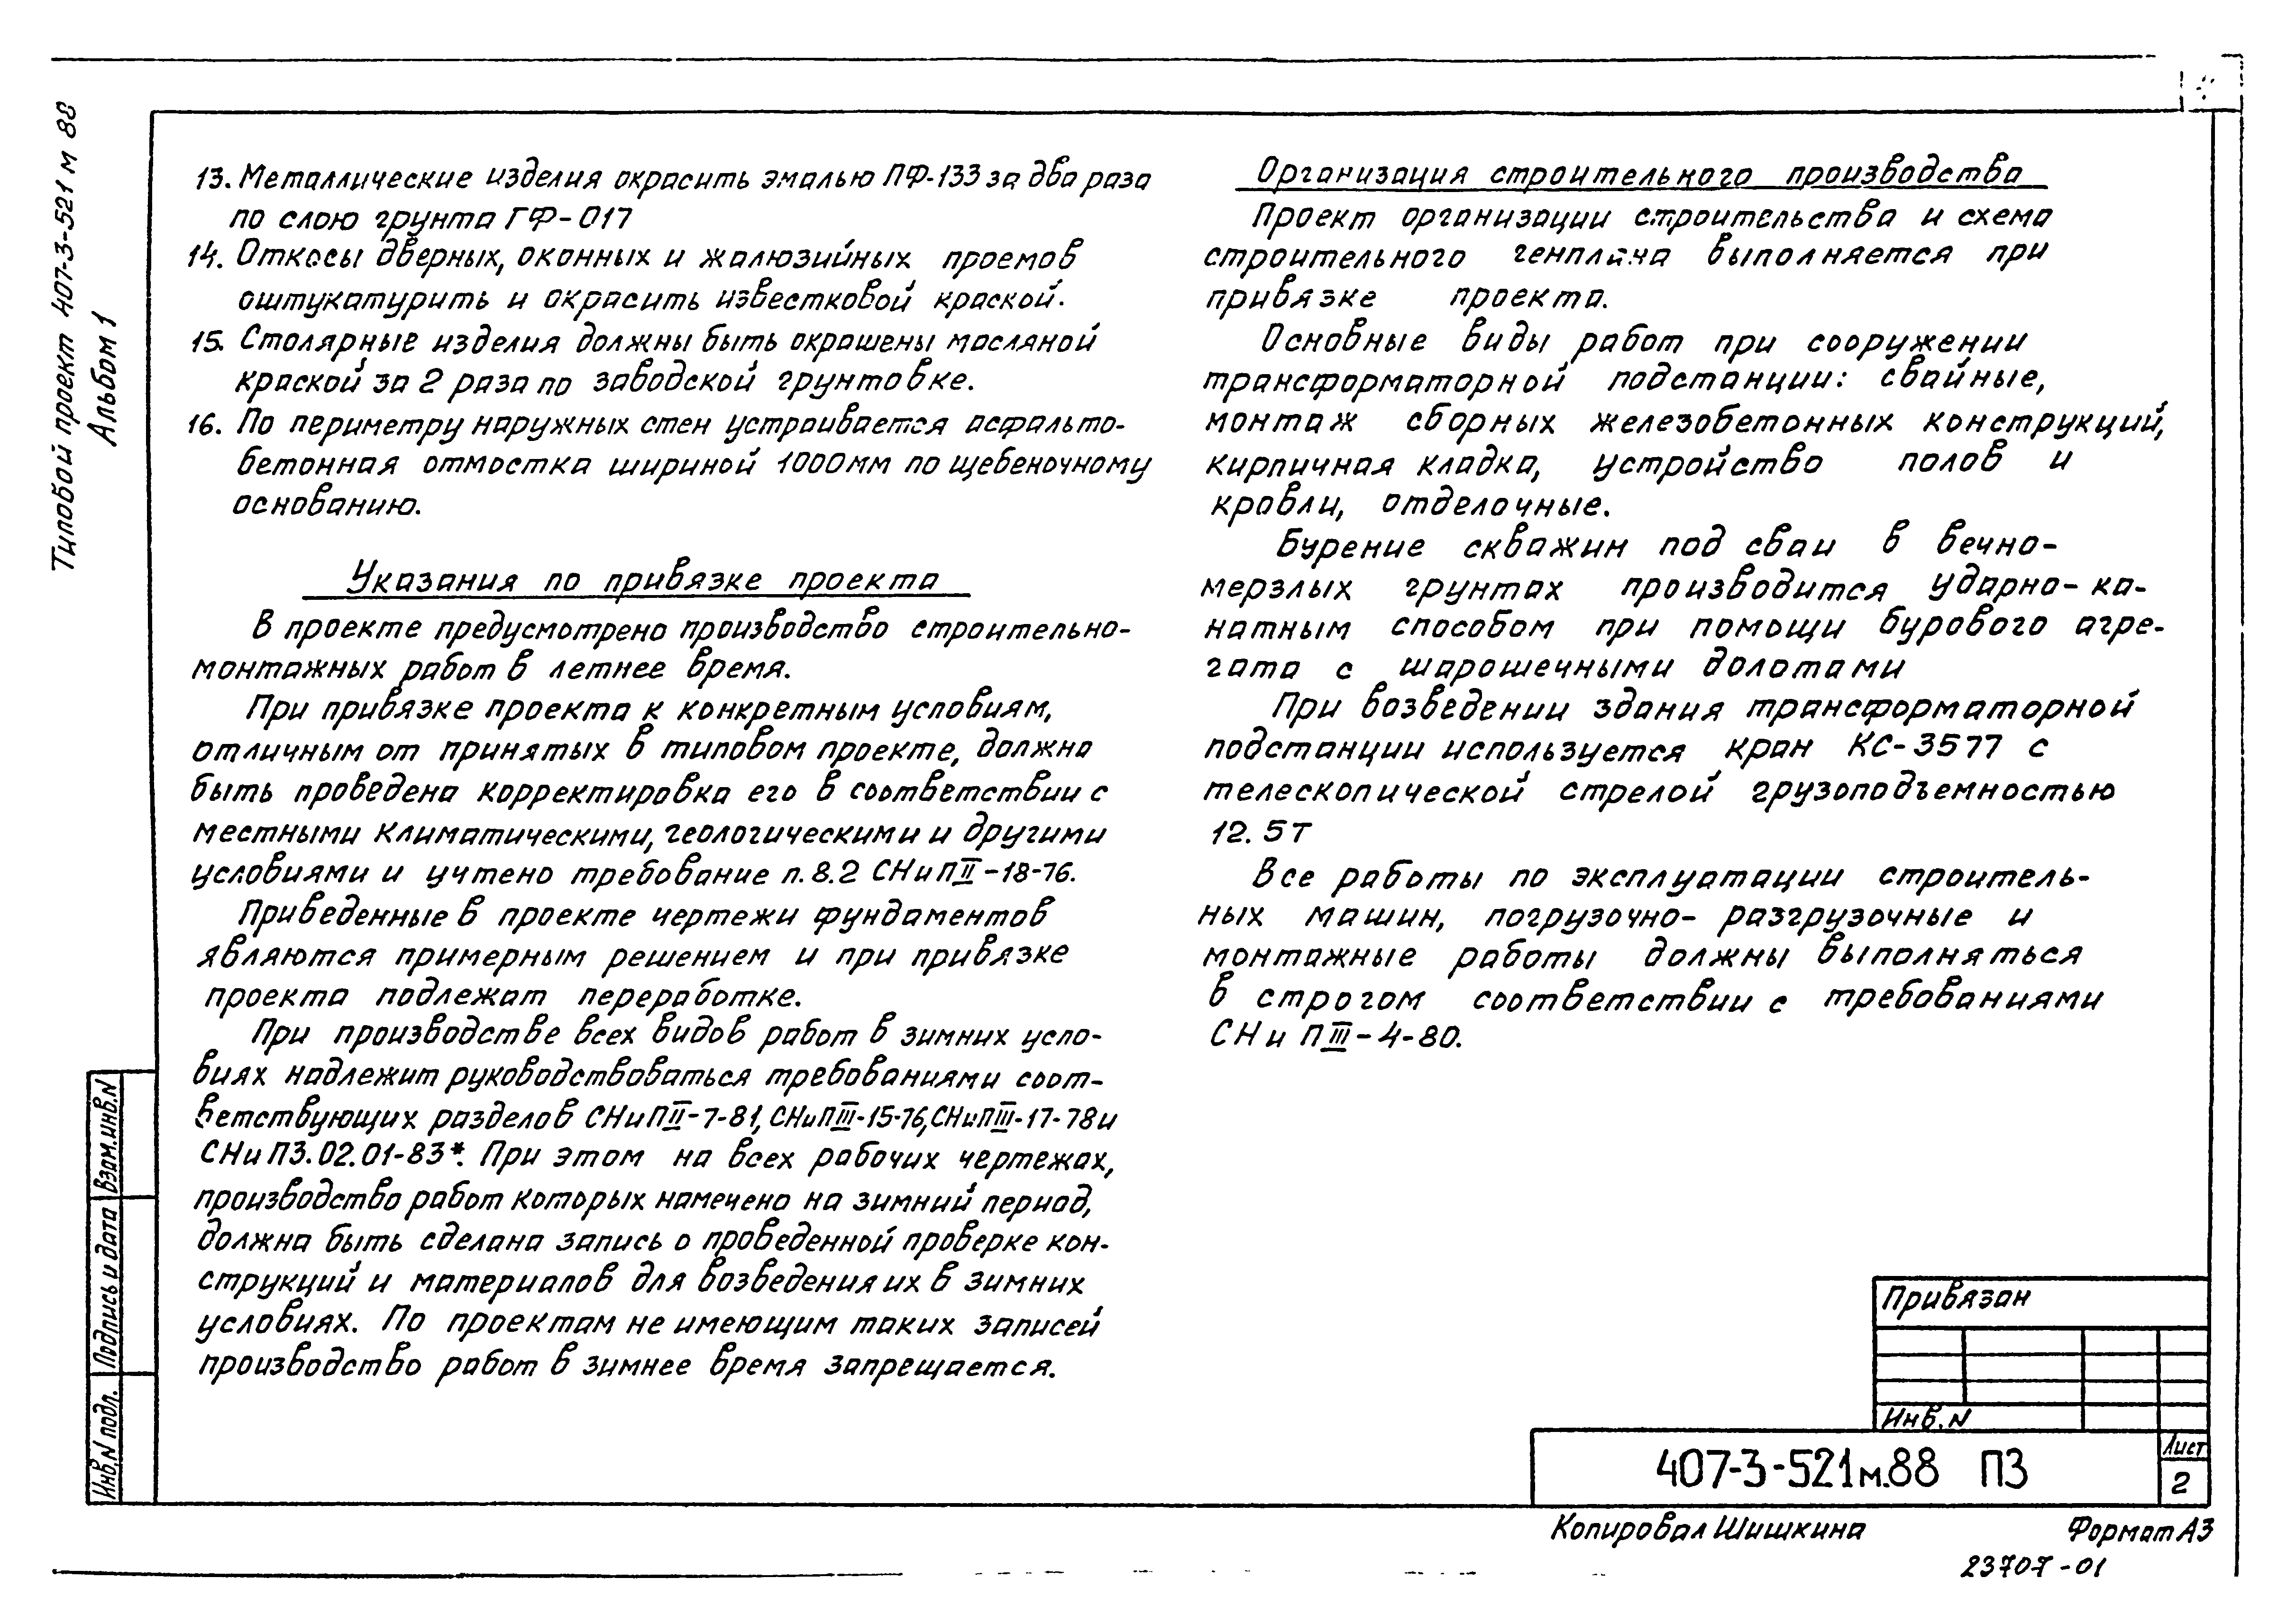 Типовой проект 407-3-521 м 88
Альбом 1
13. Металлические изделия окрасить эмалью ПФ-133 за два раза
по слою грунта ГФ-017
14. Откосы дверных, оконных и жалюзийных проемов
оштукатурить и окрасить известковой краской.
15. Столярные изделия должны быть окрашены масляной
краской за 2 раза по заводской грунтовке.
16. По периметру наружных стен устраивается асфальто-
бетонная отмостка шириной 1000мм по щебеночному
основанию.
Указания по привязке проекта
В проекте предусмотрено производство строительно-
монтажных работ в летнее время.
При привязке проекта к конкретным условиям,
отличным от принятых в типовом проекте, должна
быть проведена корректировка его в соответствии с
местными климатическими, геологическими и другими
условиями и учтено требование п. 8.2 СНиП II-18-76.
Приведенные в проекте чертежи фундаментов
являются примерным решением и при привязке
проекта подлежат переработке.
При производстве всех видов работ в зимних усло-
виях надлежит руководствоваться требованиями соот-
ветствующих разделов СНиП II-7-81, СНиП III-15-76, СНиП III-17-78 и
СНиП 3.02.01-83*. При этом на всех рабочих чертежах,
производство работ которых намечено на зимний период,
должна быть сделана запись о проведенной проверке кон-
струкций и материалов для возведения их в зимних
условиях. По проектам не имеющим таких записей
производство работ в зимнее время запрещается.
Организация строительного производства
Проект организации строительства и схема
строительного генплана выполняется при
привязке проекта.
Основные виды работ при сооружении
трансформаторной подстанции: свайные,
монтаж сборных железобетонных конструкций,
кирпичная кладка, устройство полов и
кровли, отделочные.
Бурение скважин под сваи в вечно-
мерзлых грунтах производится ударно-ка-
натным способом при помощи бурового агре-
гата с шарошечными долотами
При возведении здания трансформаторной
подстанции используется кран КС-3577 с
телескопической стрелой грузоподъемностью
12.5т
Все работы по эксплуатации строитель-
ных машин, погрузочно-разгрузочные и
монтажные работы должны выполняться
в строгом соответствии с требованиями
СНиП III-4-80.
Взам.инв.N
Подпись и дата
Инв.N подл.
Привязан
Инв.N
407-3-521м.88 ПЗ
Лист
2
Копировал Шишкина
Формат А3
23707-01